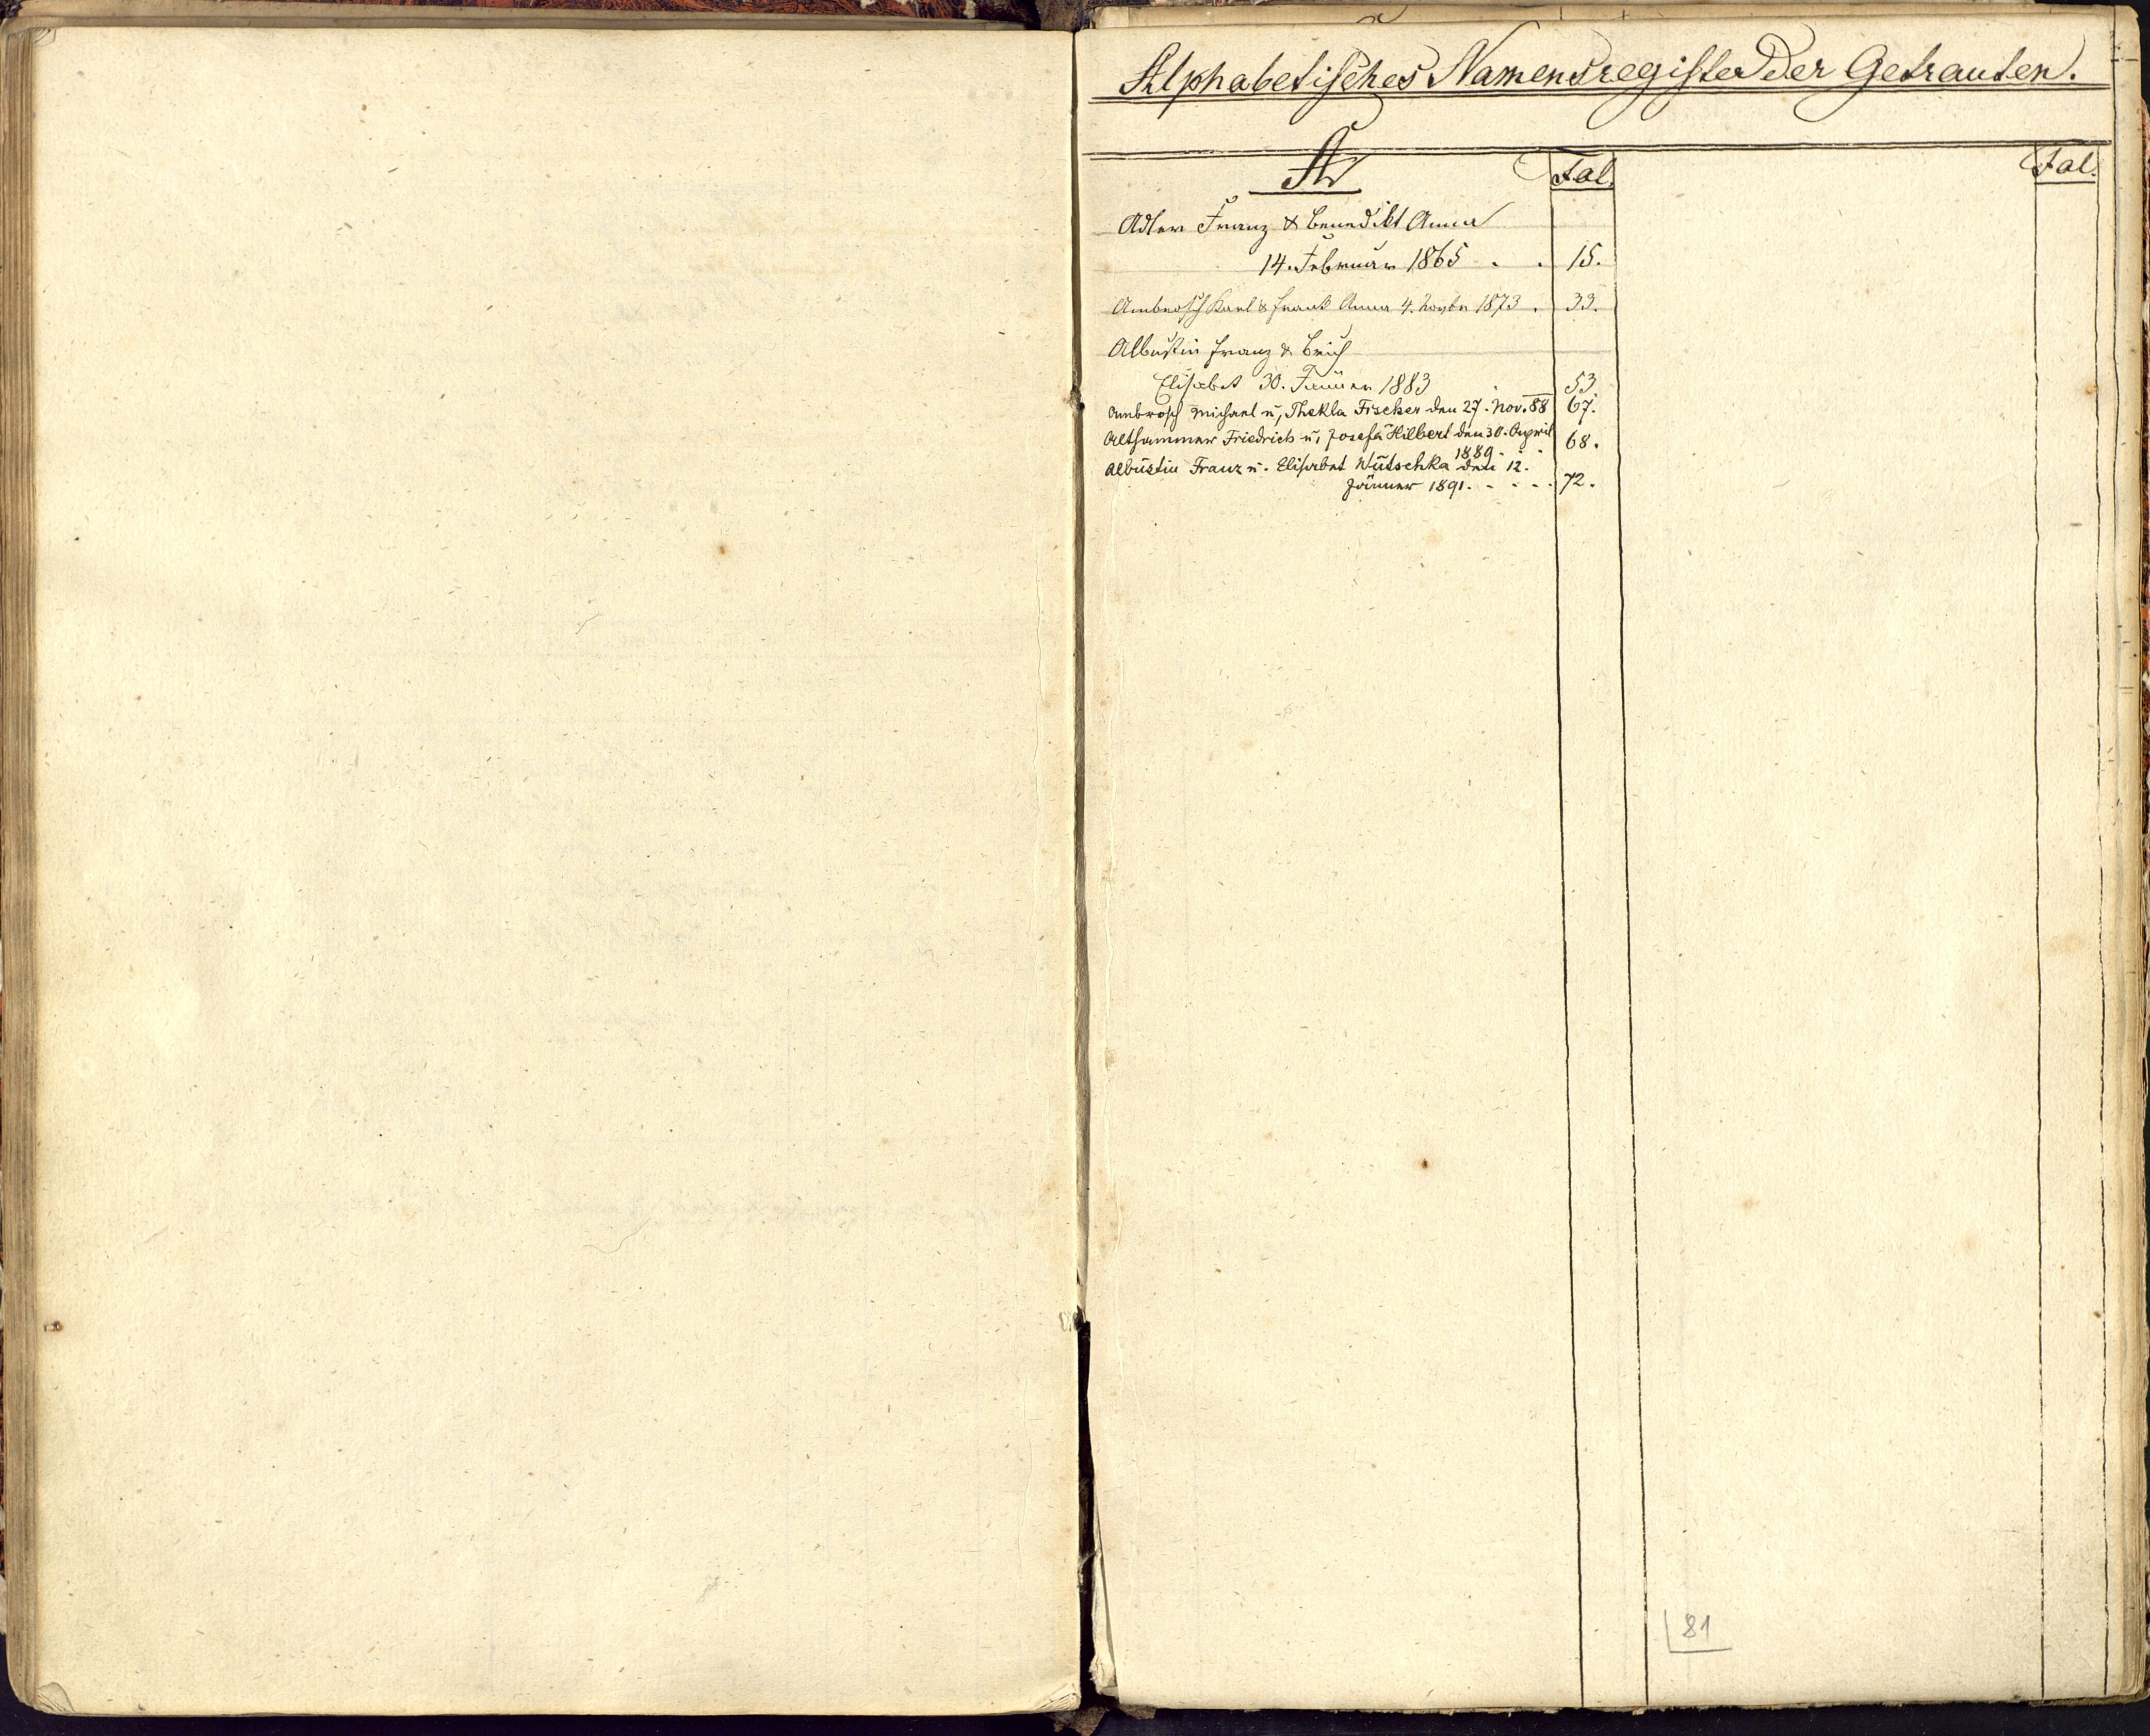 Alphabetisches Namensregister der Getrauten.
A
Fol.
Fol.
Adler Franz & Benedikt Anna
14. Februar 1865 . . 15.
Ambrosch Karl & Frank Anna 4. Novbr 1873 . 33.
Albustin Franz & Brich
Elisabet 30. Jänner 1883 . 53.
Ambrosch Michael u, Thekla Fischer den 27. Nov. 88 67.
Althammer Friedrich u, Josefa Hilbert den 30. April
1889 . . 68.
Albustin Franz u. Elisabet Wutschka den 12.
Jänner 1891. . . . . 72.
81